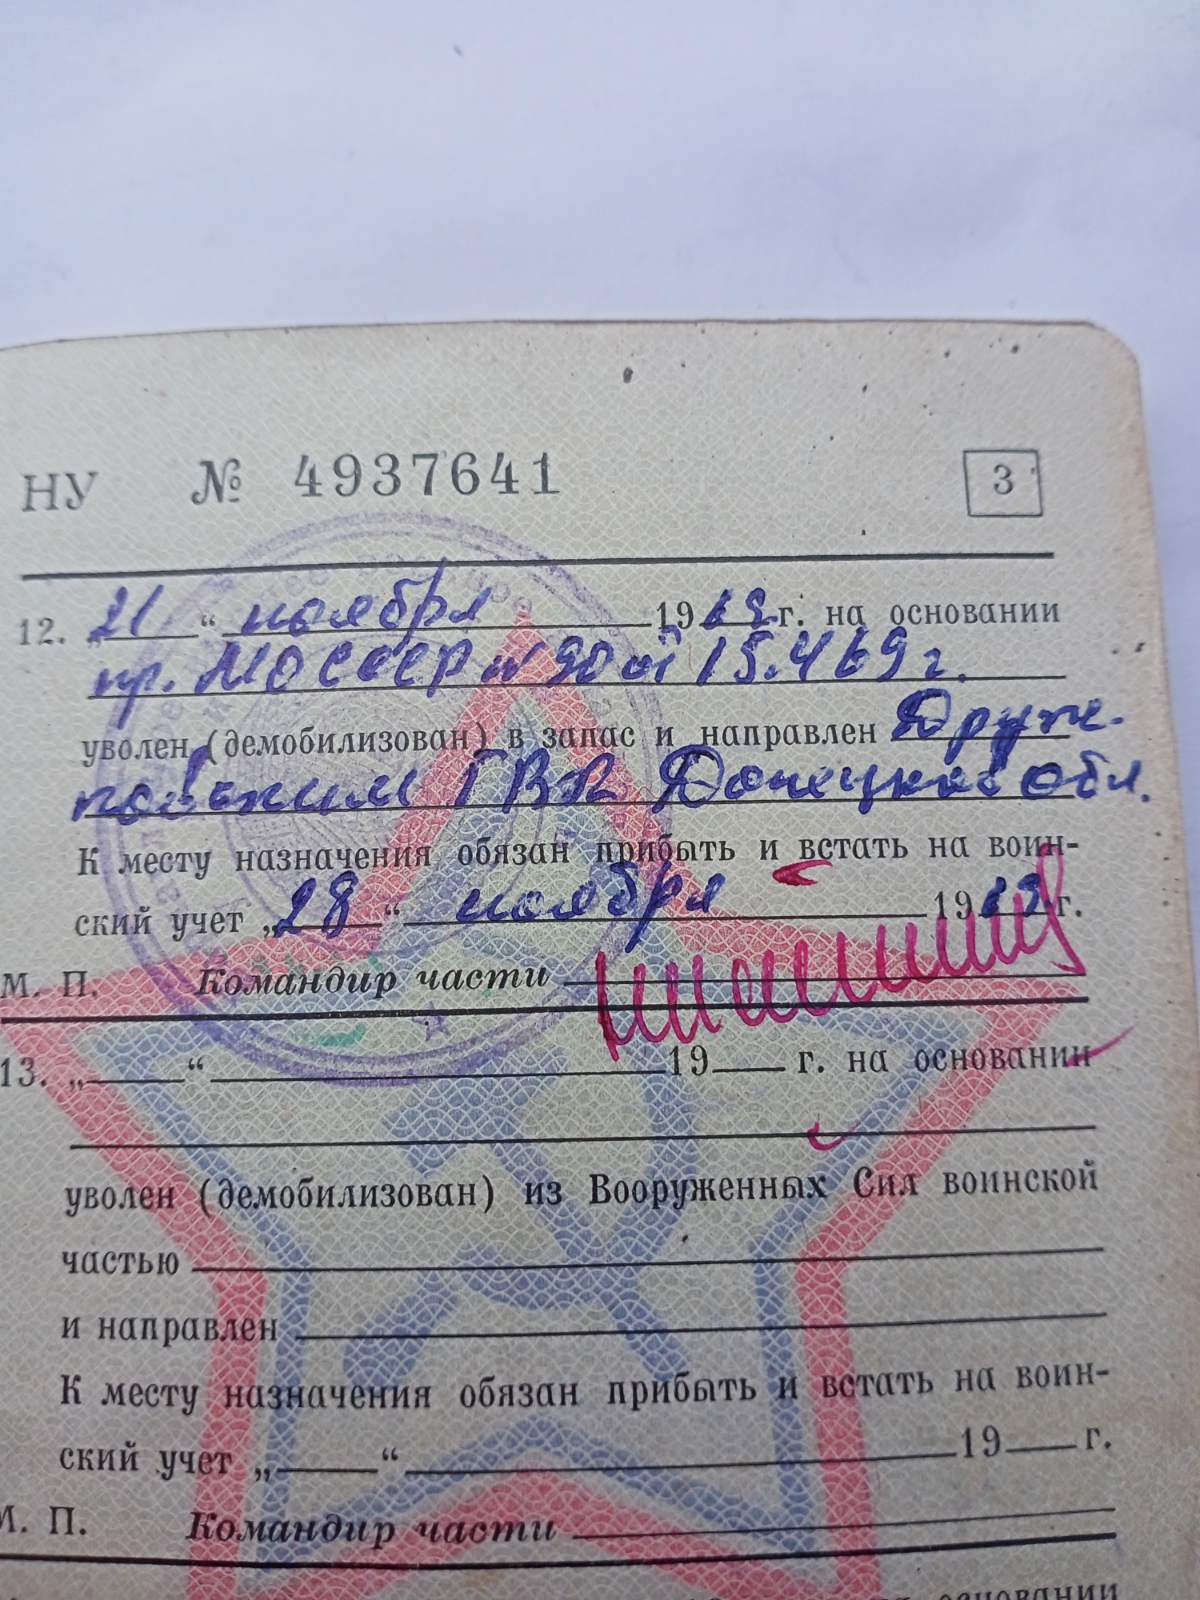 НУ № 4937641 3
12. „21“ ноября 1969 г. на основании
пр. МО СССР № 90 от 15.4 69 г.
уволен (демобилизован) в запас и направлен Друж-
ковским ГВК Донецкой обл.
К месту назначения обязан прибыть и встать на воин-
ский учет „28“ ноября 1969 г.
М. П. Командир части
13. „ “ 19 г. на основании
уволен (демобилизован) из Вооруженных Сил воинской
частью
и направлен
К месту назначения обязан прибыть и встать на воин-
ский учет „ “ 19 г.
М. П. Командир части
основании